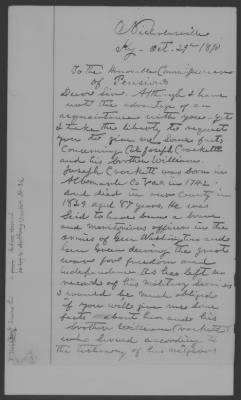 Nicholasville
Ky. Oct. 29th 1890
To the Honorable Commissioner
of Pensions
Dear sir. Although I have
not the advantage of an
acquaintance with you. yet
I take the liberty to request
you to give me some facts
Concerning Col Joseph Crockett
and his brother William.
Joseph Crockett was born in
Albemarle Co Va in 1742.
and died in our County in
1829 aged 87 years. He was
said to have been a brave
and meritorious officer in the
armies of Gen Washington and
during the great
war for freedom and
independence. As he left no
records of his military services
I would be much obliged
if you will give me some
facts about him and his
brother William Crockett
who served according to
the testimony of his neighbors